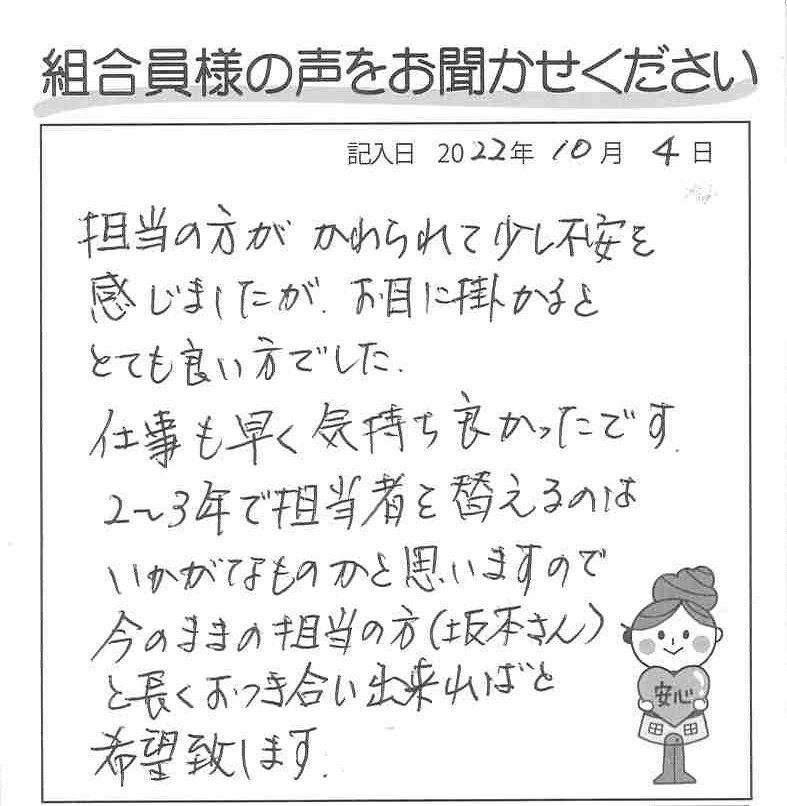 組合員様の声をお聞かせください
記入日 2022年 10月 4日
担当の方が かわられて少し不安を
感じましたが、お目に掛かると
とても良い方でした.
仕事も早く気持ち良かったです.
2〜3年で担当者を替えるのは
いかがなものかと思いますので
今のままの担当の方(坂本さん)
と長くおつき合い出来ればと
希望致します.
安心